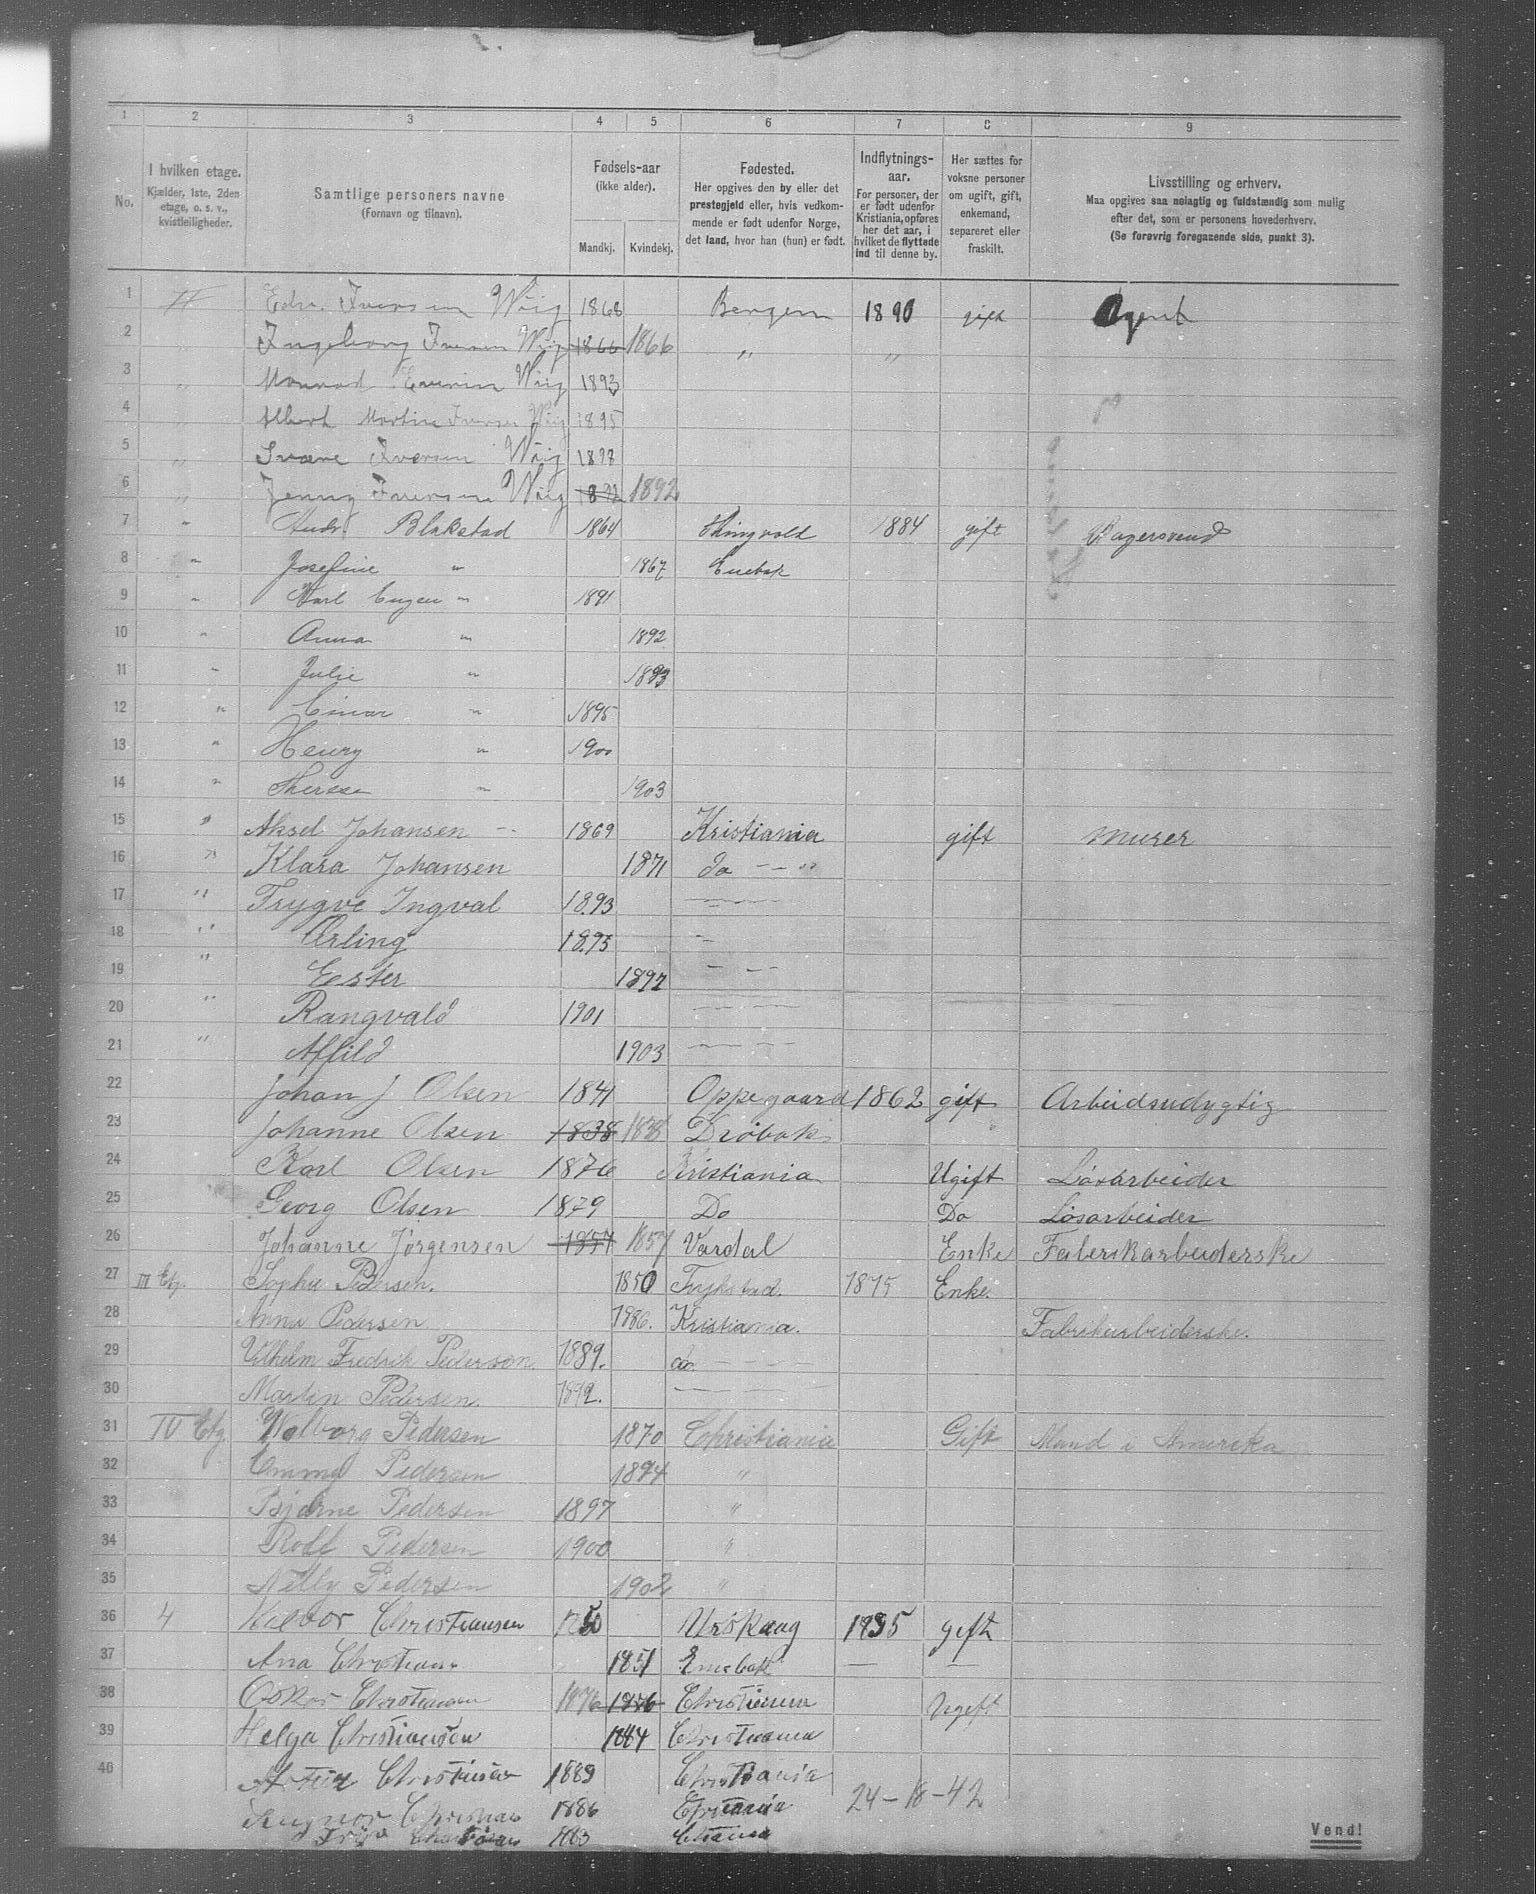 1 2 3 4 5 6 7 8 9
No.
I hvilken etage.
Kjælder, 1ste, 2den
etage, o. s. v.,
kvistleiligheder.
Samtlige personers navne
(Fornavn og tilnavn).
Fødsels-aar
(ikke alder).
Mandkj. Kvindekj.
Fødested.
Her opgives den by eller det
prestegjeld eller, hvis vedkom-
mende er født udenfor Norge,
det land, hvor han (hun) er født.
Indflytnings-
aar.
For personer, der
er født udenfor
Kristiania, opføres
her det aar, i
hvilket de flyttede
ind til denne by.
Her sættes for
voksne personer
om ugift, gift,
enkemand,
separeret eller
fraskilt.
Livsstilling og erhverv.
Maa opgives saa nølagtig og fuldstændig som mulig
efter det, som er personens hovederhverv.
(Se forøvrig foregaaende side, punkt 3).
1 Edv. Iversen Wiig 1868 Bergen 1890 gift Agent
2 Ingeborg Iversen Wiig 1866 1866 " "
3 " Monrad Iversen Wiig 1893
4 " Albert Martin Iversen Wiig 1895
5 " Iversen Wiig 1898
6 " Jenny Iversen Wiig 1892 1892
7 " Andr. Blakstad 1864 1884 gift
8 " Josefine " 1867 Enebak
9 " Karl Eugen " 1891
10 " Anna " 1892
11 " Julie " 1893
12 " Einar " 1895
13 " Henry " 1900
14 " Therese " 1903
15 " Aksel Johansen 1869 Kristiania gift Murer
16 " Klara Johansen 1871 do — — "
17 " Trygve Ingval 1893 — — —
18 " Erling 1895 —
19 " Ester 1897 — — —
20 " Rangvald 1901 — — —
21 " Affild 1903 — — —
22 Johan J Olsen 1841 Oppegaard 1862 gift Arbeidsudygtig
23 Johanne Olsen 1838 1838 Drøbak
24 Karl Olsen 1876 Kristiania Ugift Løsarbeider
25 Georg Olsen 1879 Do Do Løsarbeider
26 Johanne Jørgensen 1857 1857 Vardal Enke Fabrikarbeiderske
27 III Etg. Sophie Pedersen. 1850 Trykstad. 1875 Enke.
28 Anna Pedersen 1886. Kristiania. Fabrikarbeiderske.
29 Vilhelm Fredrik Pedersen. 1889. do. — — —
30 Martin Pedersen. 1892. — — —
31 IV Etg. Walborg Pedersen 1870 Christiania Gift Mand i Amerika
32 Emma Pedersen 1894 "
33 Bjarne Pedersen 1897 "
34 Rolf Pedersen 1900 "
35 Nelly Pedersen 1902 "
36 4 Christiansen 1850 Urskaag 1895 gift
37 Ana Christians 1851 Enebak — —
38 Oskar Christiansen 1876 1876 Christiania Ugift
39 Helga Christiansen 1884 Christiania
40 Artur Christiansen 1889 Christiania
Christians 1886 Christiania 24-18-42
1883
Vend!